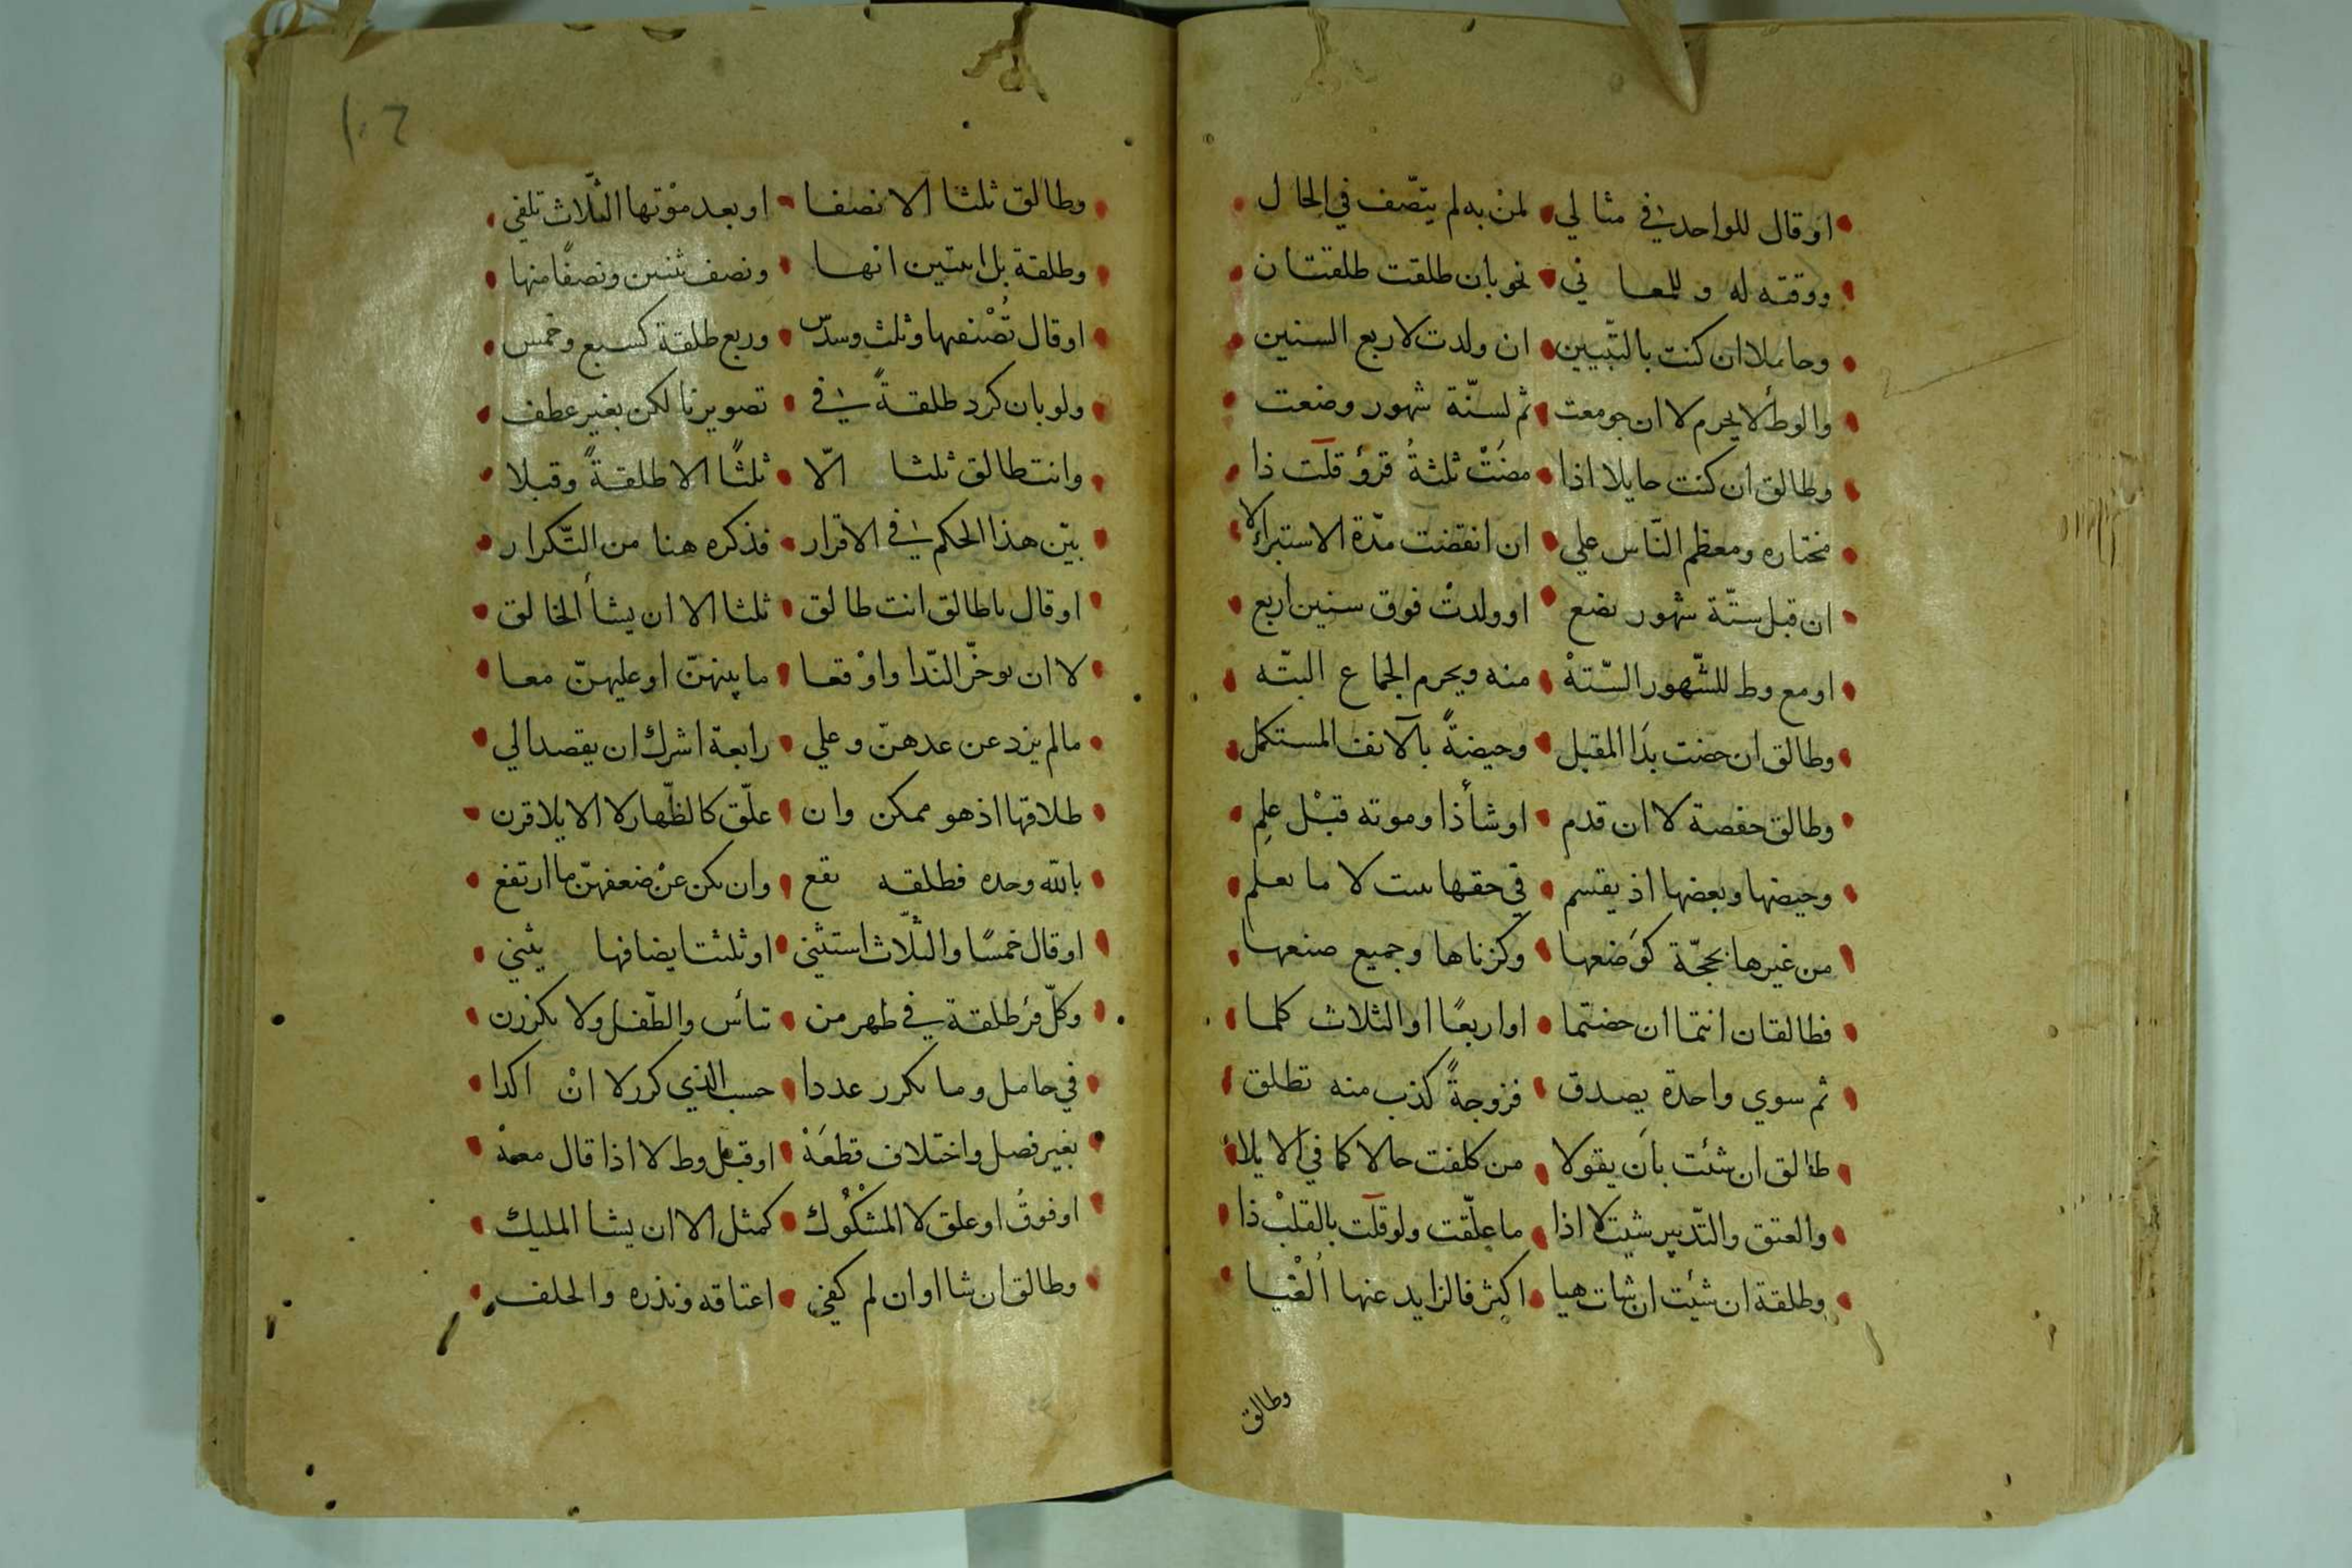 او قال للواحد في مثالي لمن به لم يتصف في الحال
ووقته له وللمعاني نحو بان طلقت طلقتان
وحاملا ان كنت بالتبيين ان ولدت لاربع السنين
والوطأ لا يحرم لا ان جومعت ثم لستة شهور وضعت
وطالق ان كنت حايلا اذا مضت ثلثة قروء قلت ذا
مختاره ومعظم الناس علي ان انقضت مدة الاستبراء لا
ان قبل ستة شهور تضع او ولدت فوق سنين اربع
او مع وط للشهور الستة منه ويحرم الجماع البته
وطالق ان حضت بذا المقبل وحيضة بالآنف المستكمل
وطالق حفصة لا ان قدم او شأ ذا وموته قبل علم
وحيضها وبعضها اذ يقسم في حقها لا ما يعلم
من غيرها بحجة كوضعها وكزناها وجميع صنعها
فطالقان انتما ان حضتما او اربعا او الثلاث كلما
ثم سوي واحدة يصدق فزوجة كذب منه تطلق
طالق ان شئت بان يقولا من كلفت حالا كما في الايلا
والعتق والتدبير شيت لا اذا ما علقت ولو قلت بالقلب ذا
وطلقة ان شئت ان شات هيا اكثر فالزايد عنها الغيا
وطالق
١٠٢
وطالق ثلثا الا نصفا او بعد موتها الثلاث تلفي
وطلقة بل اثنتين انها ونصف ثنتين ونصفا منها
او قال نصفها وثلث وسدس وربع طلقة كسبع وخمس
ولو بان كرر طلقة في تصويرنا لكن بغير عطف
وانت طالق ثلثا الا ثلثا الا طلقة وقبلا
بين هذا الحكم في الاقرار فذكره هنا من التكرار
او قال يا طالق انت طالق ثلثا الا ان يشأ الخالق
لا ان يوخر الندا واوقعا ما بينهن او عليهن معا
ما لم يزد عن عدهن وعلي رابعة اشرك ان يقصد الي
طلاقها اذ هو ممكن وان علق كالظهار لا الايلا قرن
بالله وحده فطلقه تقع وان يكن عن ضعفهن ما ارتفع
او قال خمسا والثلاث استثني او ثلثتا يضافها يثني
وكل قرء طلقة في طهر من تيأس والطفل ولا يكررن
في حامل وما يكرر عددا حسب الذي كرر لا ان اكدا
بغير فصل واختلاف قطعه او قبل وط لا اذا قال معه
او فوق او علق لا المشكوك كمثل الا ان يشا المليك
وطالق ان شا او ان لم كفي اعتاقه ونذره والحلف